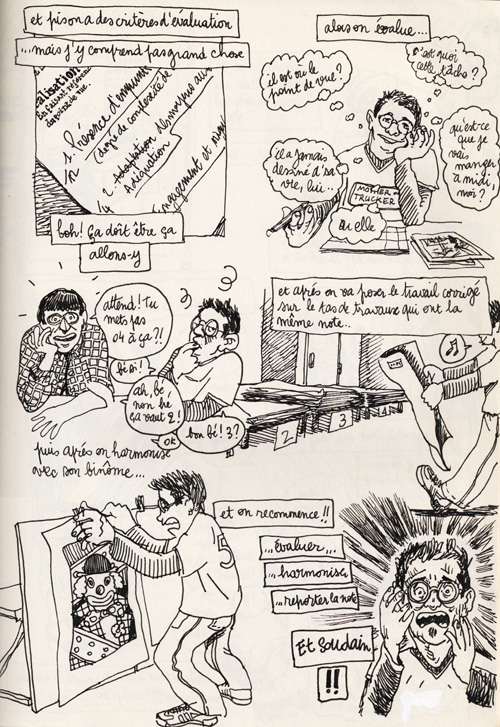 et puis on a des critères d'évaluation
...mais j'y comprend pas grand chose
alisation
1. Présence d'
(degré de complexité de
2. adaptation des moyens au
adéquation
engagement et
boh! Ça doit être ça
allons-y
alors on évalue...
c'est quoi
cette tâche?
il est où le
point de vue?
qu'est-ce
que je
vais
manger
à midi,
moi?
il a jamais
dessiné d'sa
vie, lui..
MOTHER
TRUCKER
ou elle
attend! Tu
mets pas
04 à ça?!
bé si!
ah, bé,
non hé
ça vaut 2!
bon bé! 3?
OK
puis après on harmonise
avec son binôme...
et après on va poser le travail corrigé
sur le tas de travaux qui ont la
même note..
2
3
4
5
et on recommence!!
...évaluer...
...harmoniser
...reporter la note
Et Soudain
!!